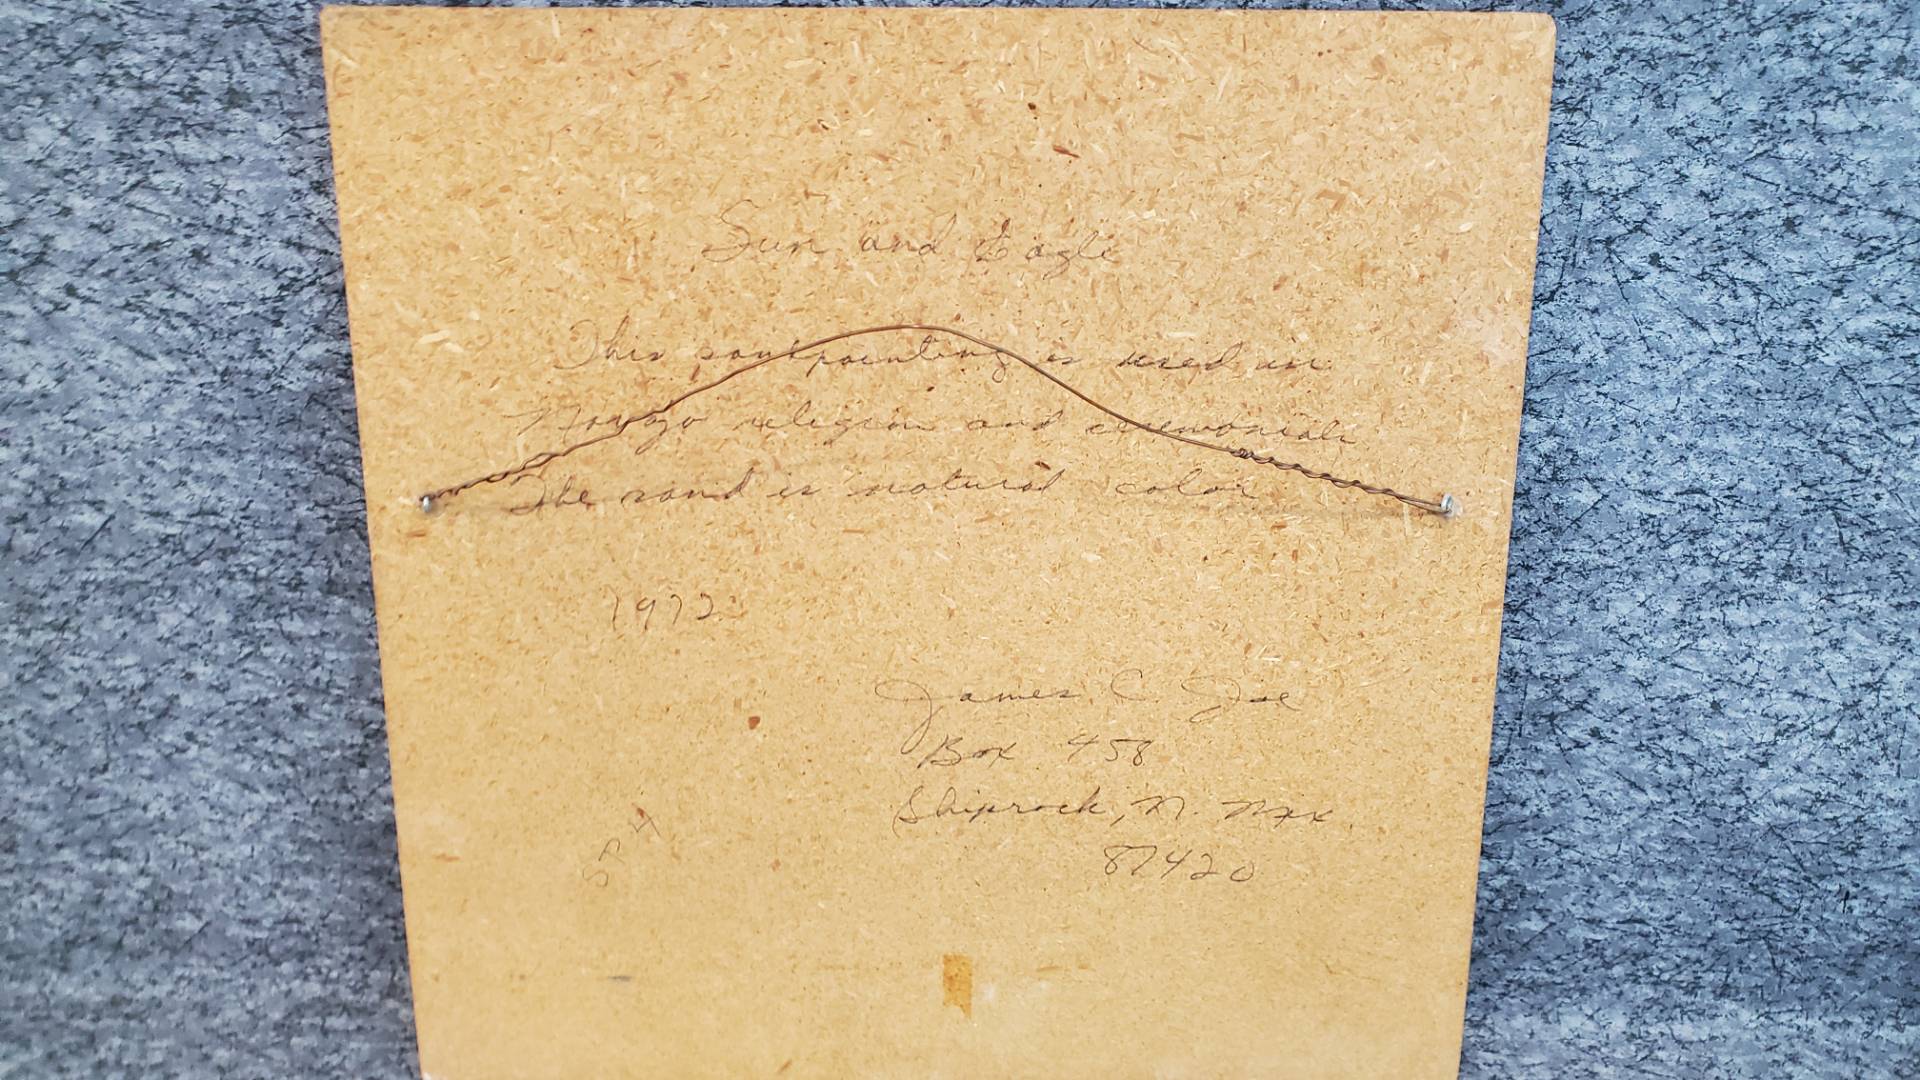 Sun and Eagle
This sandpainting is used in
Navajo religion and ceremonials
The sand is natural color
1972
James C. Joe
Box 458
Shiprock, N. Mex.
87420